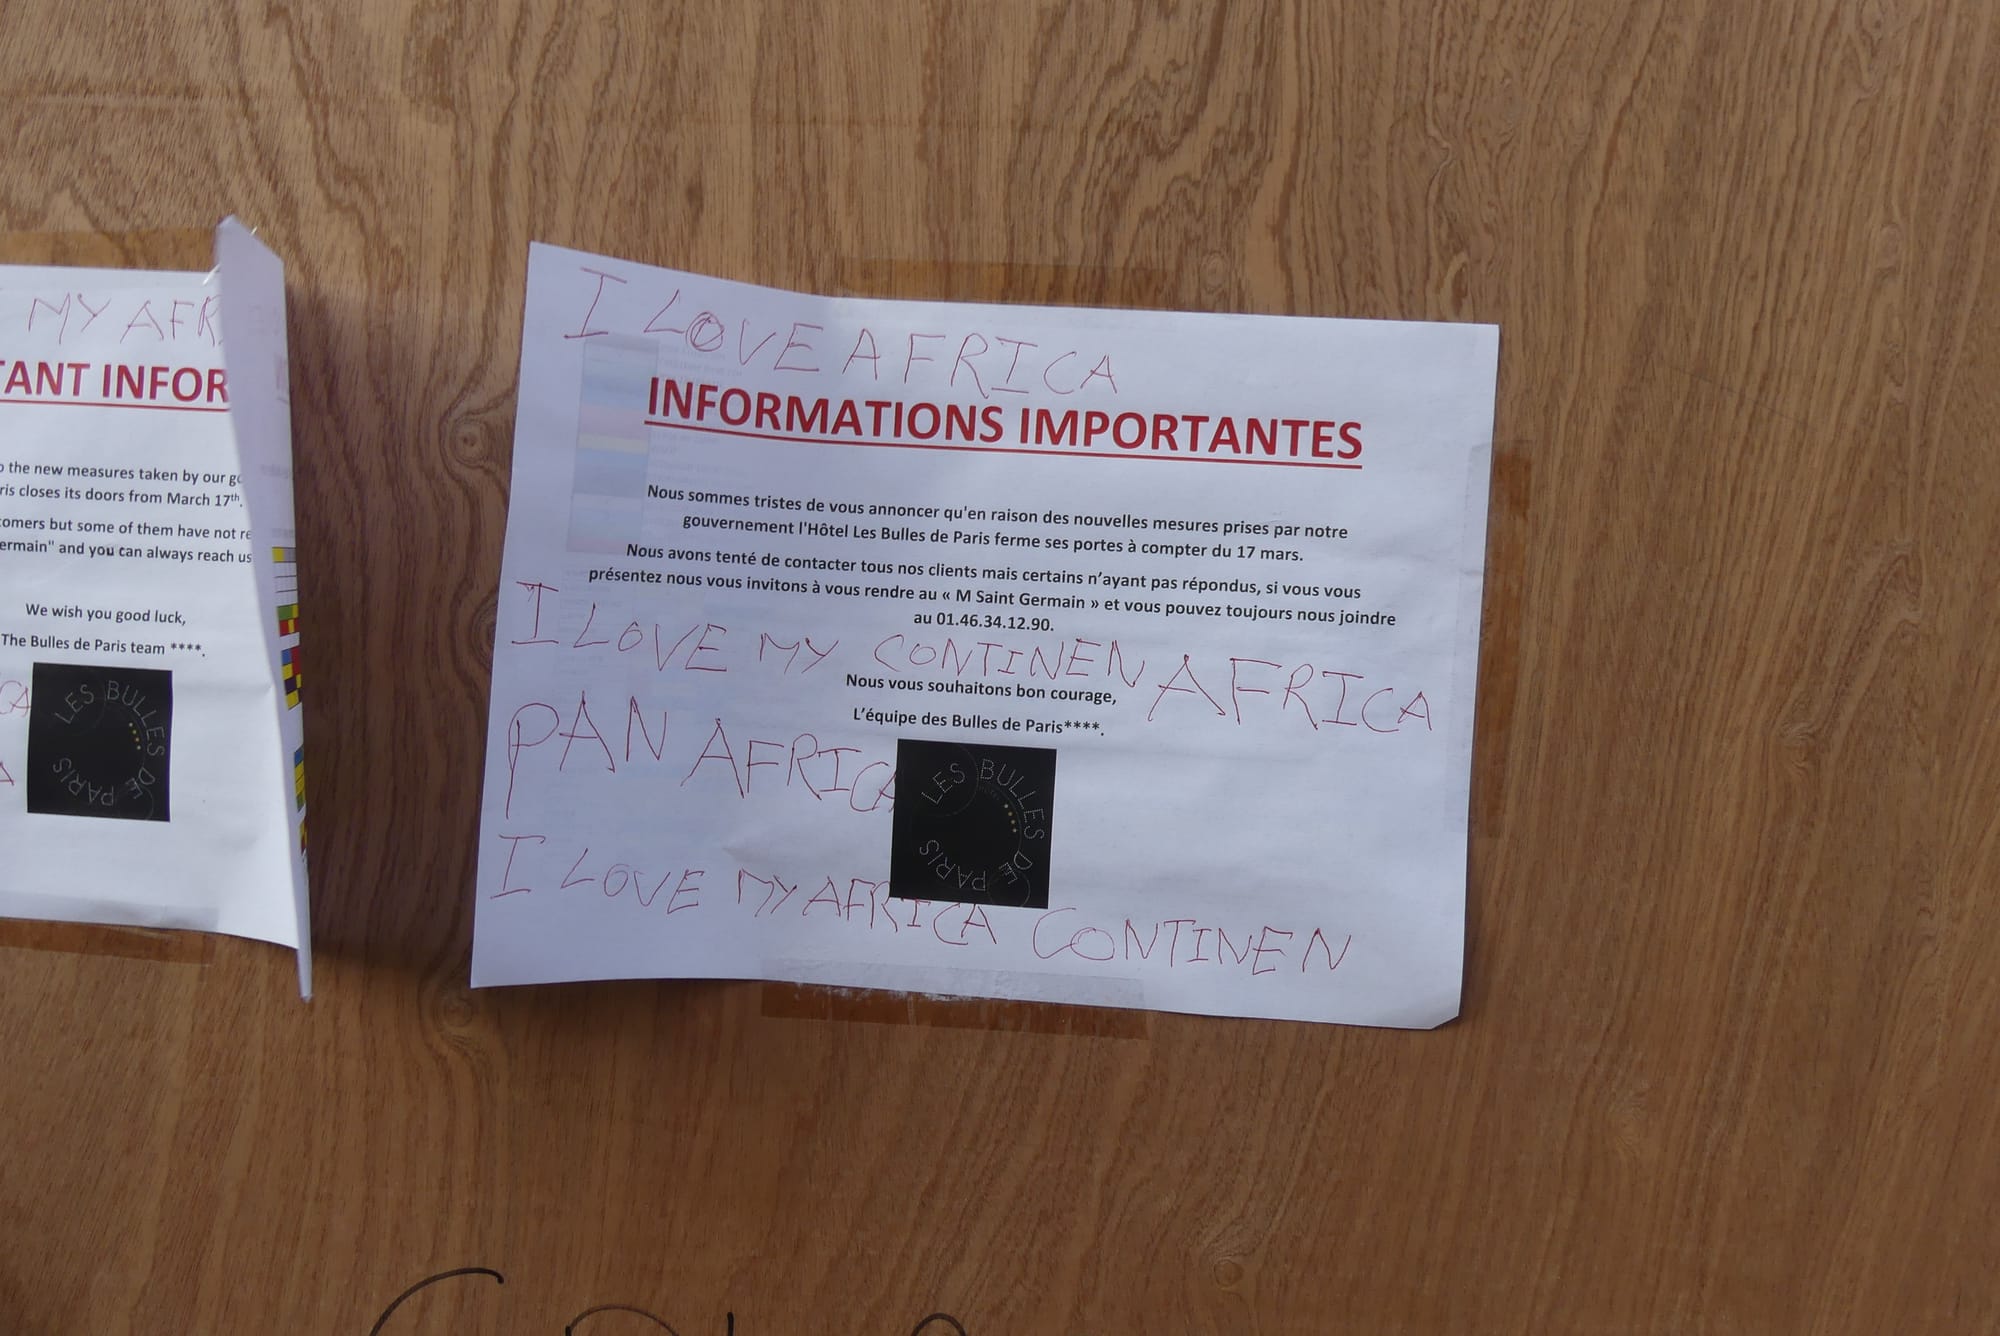 MY AFR
TANT INFOR
the new measures taken by our
ris closes its doors from March 17th.
tomers but some of them have not
ermain" and you can always reach us
We wish you good luck,
The Bulles de Paris team ****.
LES BULLES DE PARIS
I LOVE AFRICA
INFORMATIONS IMPORTANTES
Nous sommes tristes de vous annoncer qu'en raison des nouvelles mesures prises par notre
gouvernement l'Hôtel Les Bulles de Paris ferme ses portes à compter du 17 mars.
Nous avons tenté de contacter tous nos clients mais certains n'ayant pas répondus, si vous vous
présentez nous vous invitons à vous rendre au « M Saint Germain » et vous pouvez toujours nous joindre
au 01.46.34.12.90.
I LOVE MY CONTINEN AFRICA
Nous vous souhaitons bon courage,
L'équipe des Bulles de Paris****.
PAN AFRICA
LES BULLES DE PARIS
I LOVE MY AFRICA CONTINEN